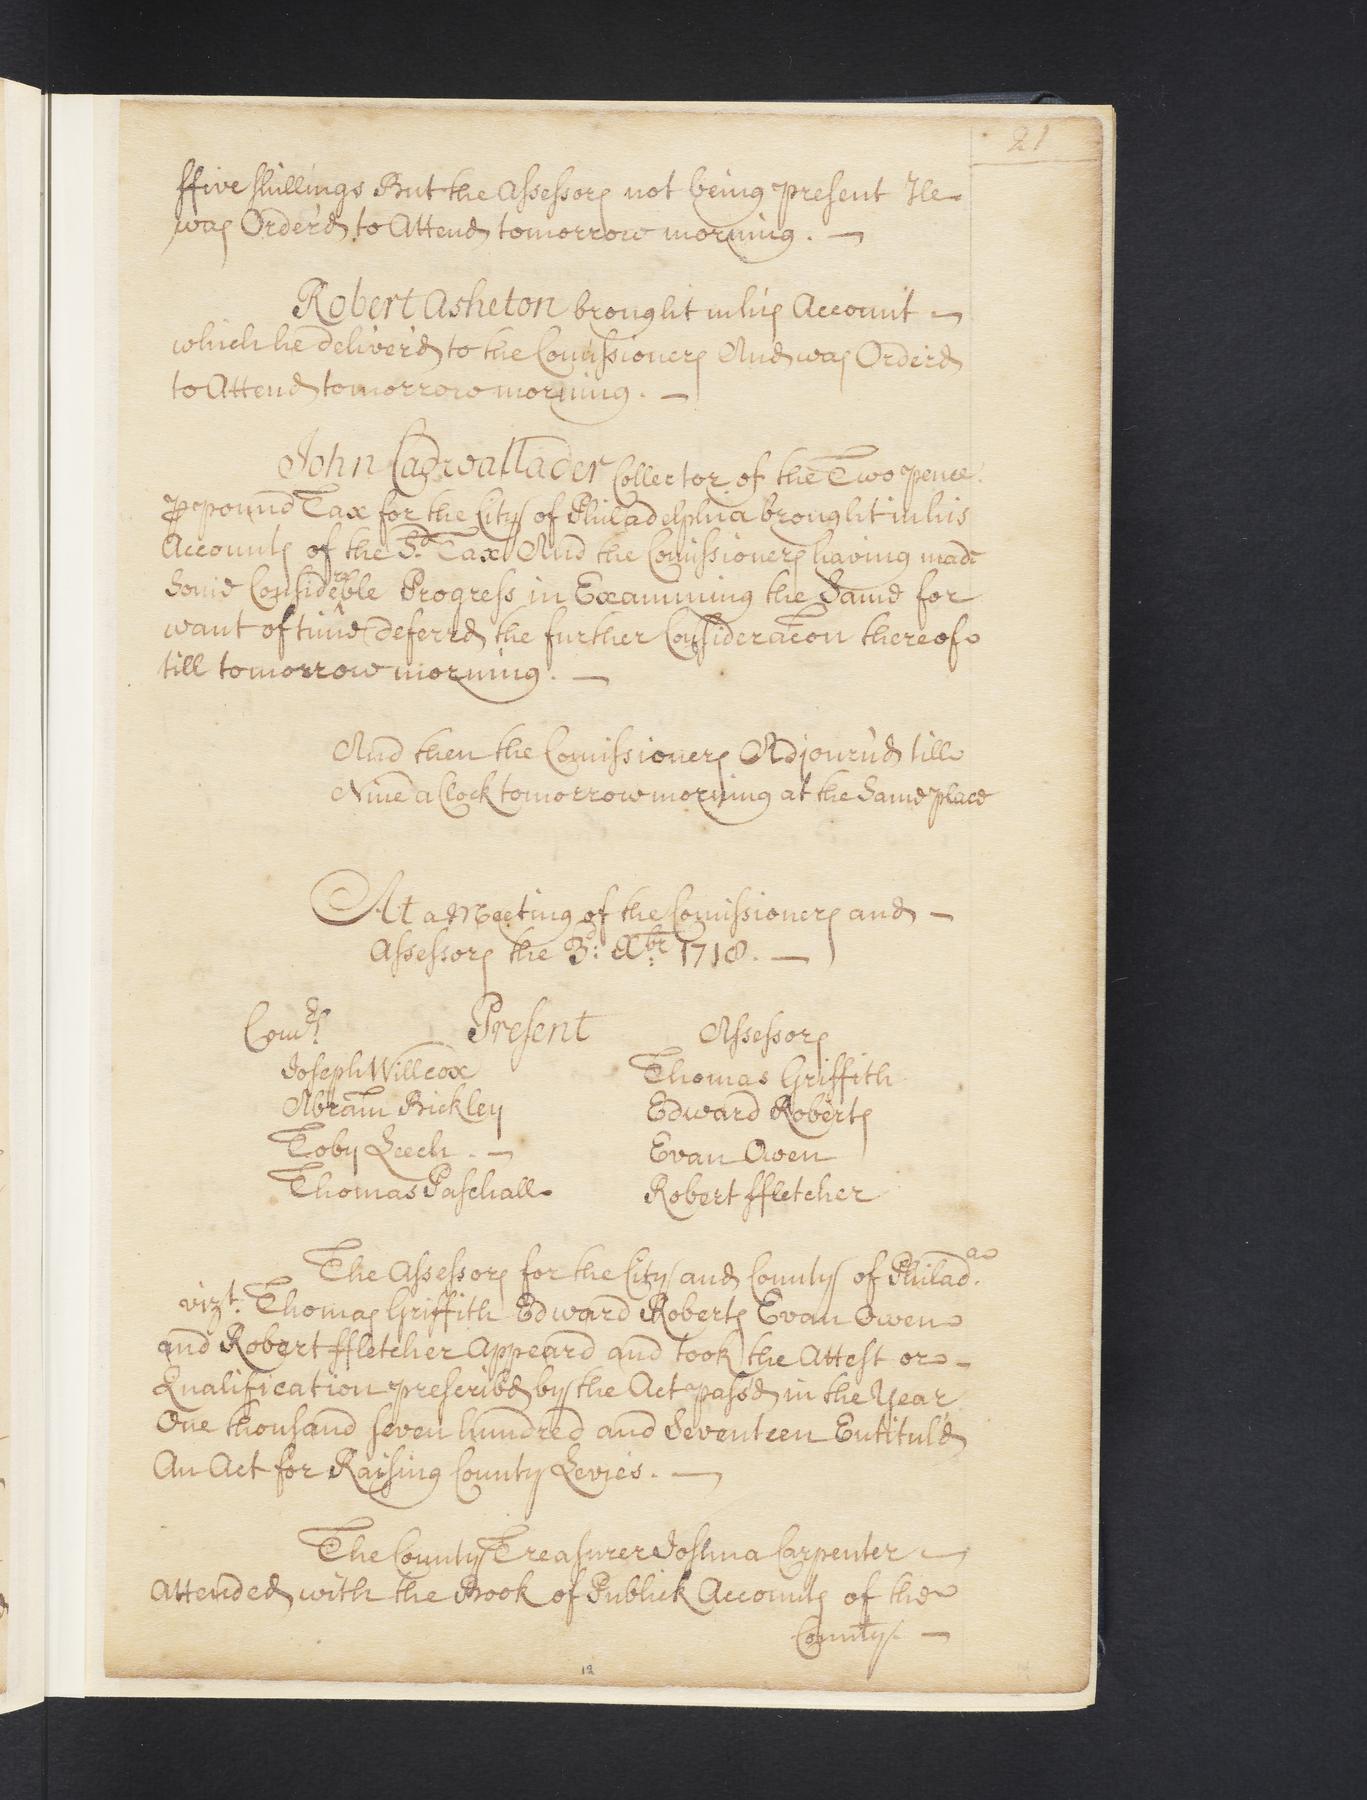 21
ffive shillings But the Assessors not being present He
was Order'd to Attend tomorrow morning. —
Robert Asheton brought in his Account —
which he deliver'd to the Comissioners And was Order'd
to Attend tomorrow morning. —
John Cadwallader Collector of the Two pence
p pound Tax for the City of Philadelphia brought in his
Accounts of the Sd. Tax And the Comissioners having made
Some Considerable Progress in Examining the Same for
want of time deferrd the further Consideracon thereof
till tomorrow morning. —
And then the Comissioners Adjourn'd till
Nine a Clock tomorrow morning at the Same place
At a Meeting of the Comissioners and —
Assessors the 3d: Xbr: 1718. —
Comrs. Present Assessors
Joseph Willcox Thomas Griffith
Abram Bickley Edward Roberts
Toby Leech. — Evan Owen
Thomas Paschall Robert ffletcher
The Assessors for the City and County of Philada.
vizt. Thomas Griffith Edward Roberts Evan Owen
and Robert ffletcher Appeard and took the Attest or —
Qualification prescrib'd by the Act pass'd in the Year
One thousand seven hundred and Seventeen Entitul'd
An Act for Raising County Levies. —
The County Treasurer Joshua Carpenter —
Attended with the Book of Publick Accounts of the
County. —
12